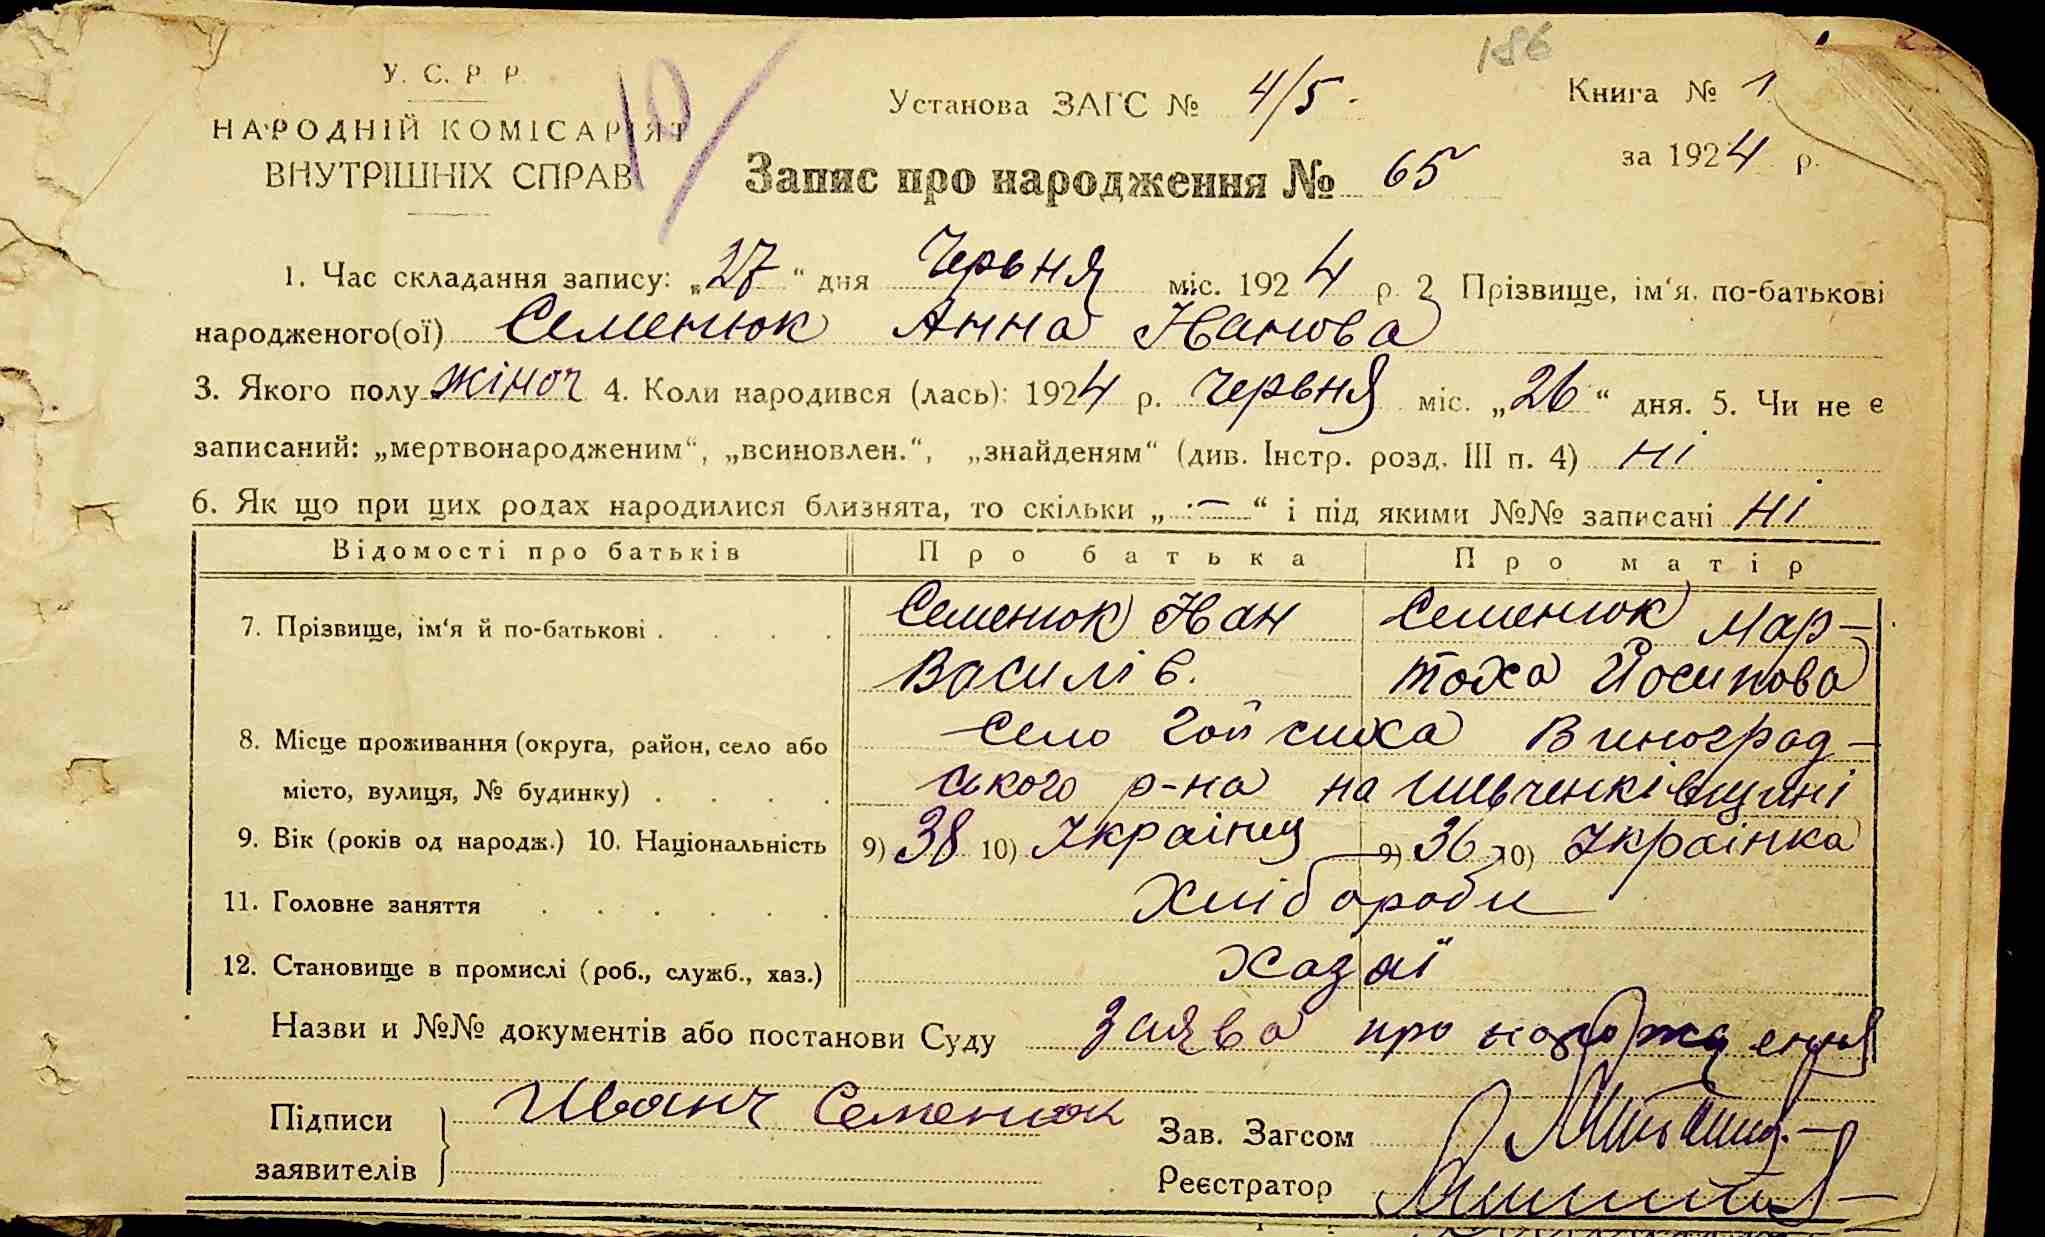 186
У. С. Р. Р.
Установа ЗАГС № 4/5.
Книга № 1
НАРОДНІЙ КОМІСАРІЯТ
10/
за 1924 р.
ВНУТРІШНІХ СПРАВ
Запис про народження № 65
1. Час складання запису: „27“ дня Червня міс. 1924 р. 2 Прізвище, ім‘я, по-батькові
народженого(ої) Семенюк Анна Іванова
3. Якого полу жіноч 4. Коли народився (лась): 1924 р. червня міс. „26“ дня. 5. Чи не є
записаний: „мертвонародженим“, „всиновлен.“, „знайденям“ (див. Інстр. розд. III п. 4) ні
6. Як що при цих родах народилися близнята, то скільки „—“ і під якими №№ записані ні
Відомості про батьків Про батька Про матір
7. Прізвище, ім‘я й по-батькові . . . . Семенюк Іван Семенюк Мар-
Василів. Йосипова
8. Місце проживання (округа, район, село або село Виноград-
місто, вулиця, № будинку) . . . . ського р-на на Шевченківщині
9. Вік (років од народж.) 10. Національність 9) 38 10) Українец 9) 36 10) Українка
11. Головне заняття . . . . . . Хлібороби
12. Становище в промислі (роб., служб., хаз.) Хазяї
Назви и №№ документів або постанови Суду заява про народження
Підписи Иванъ Семенюк
Зав. Загсом
заявителів
Реєстратор